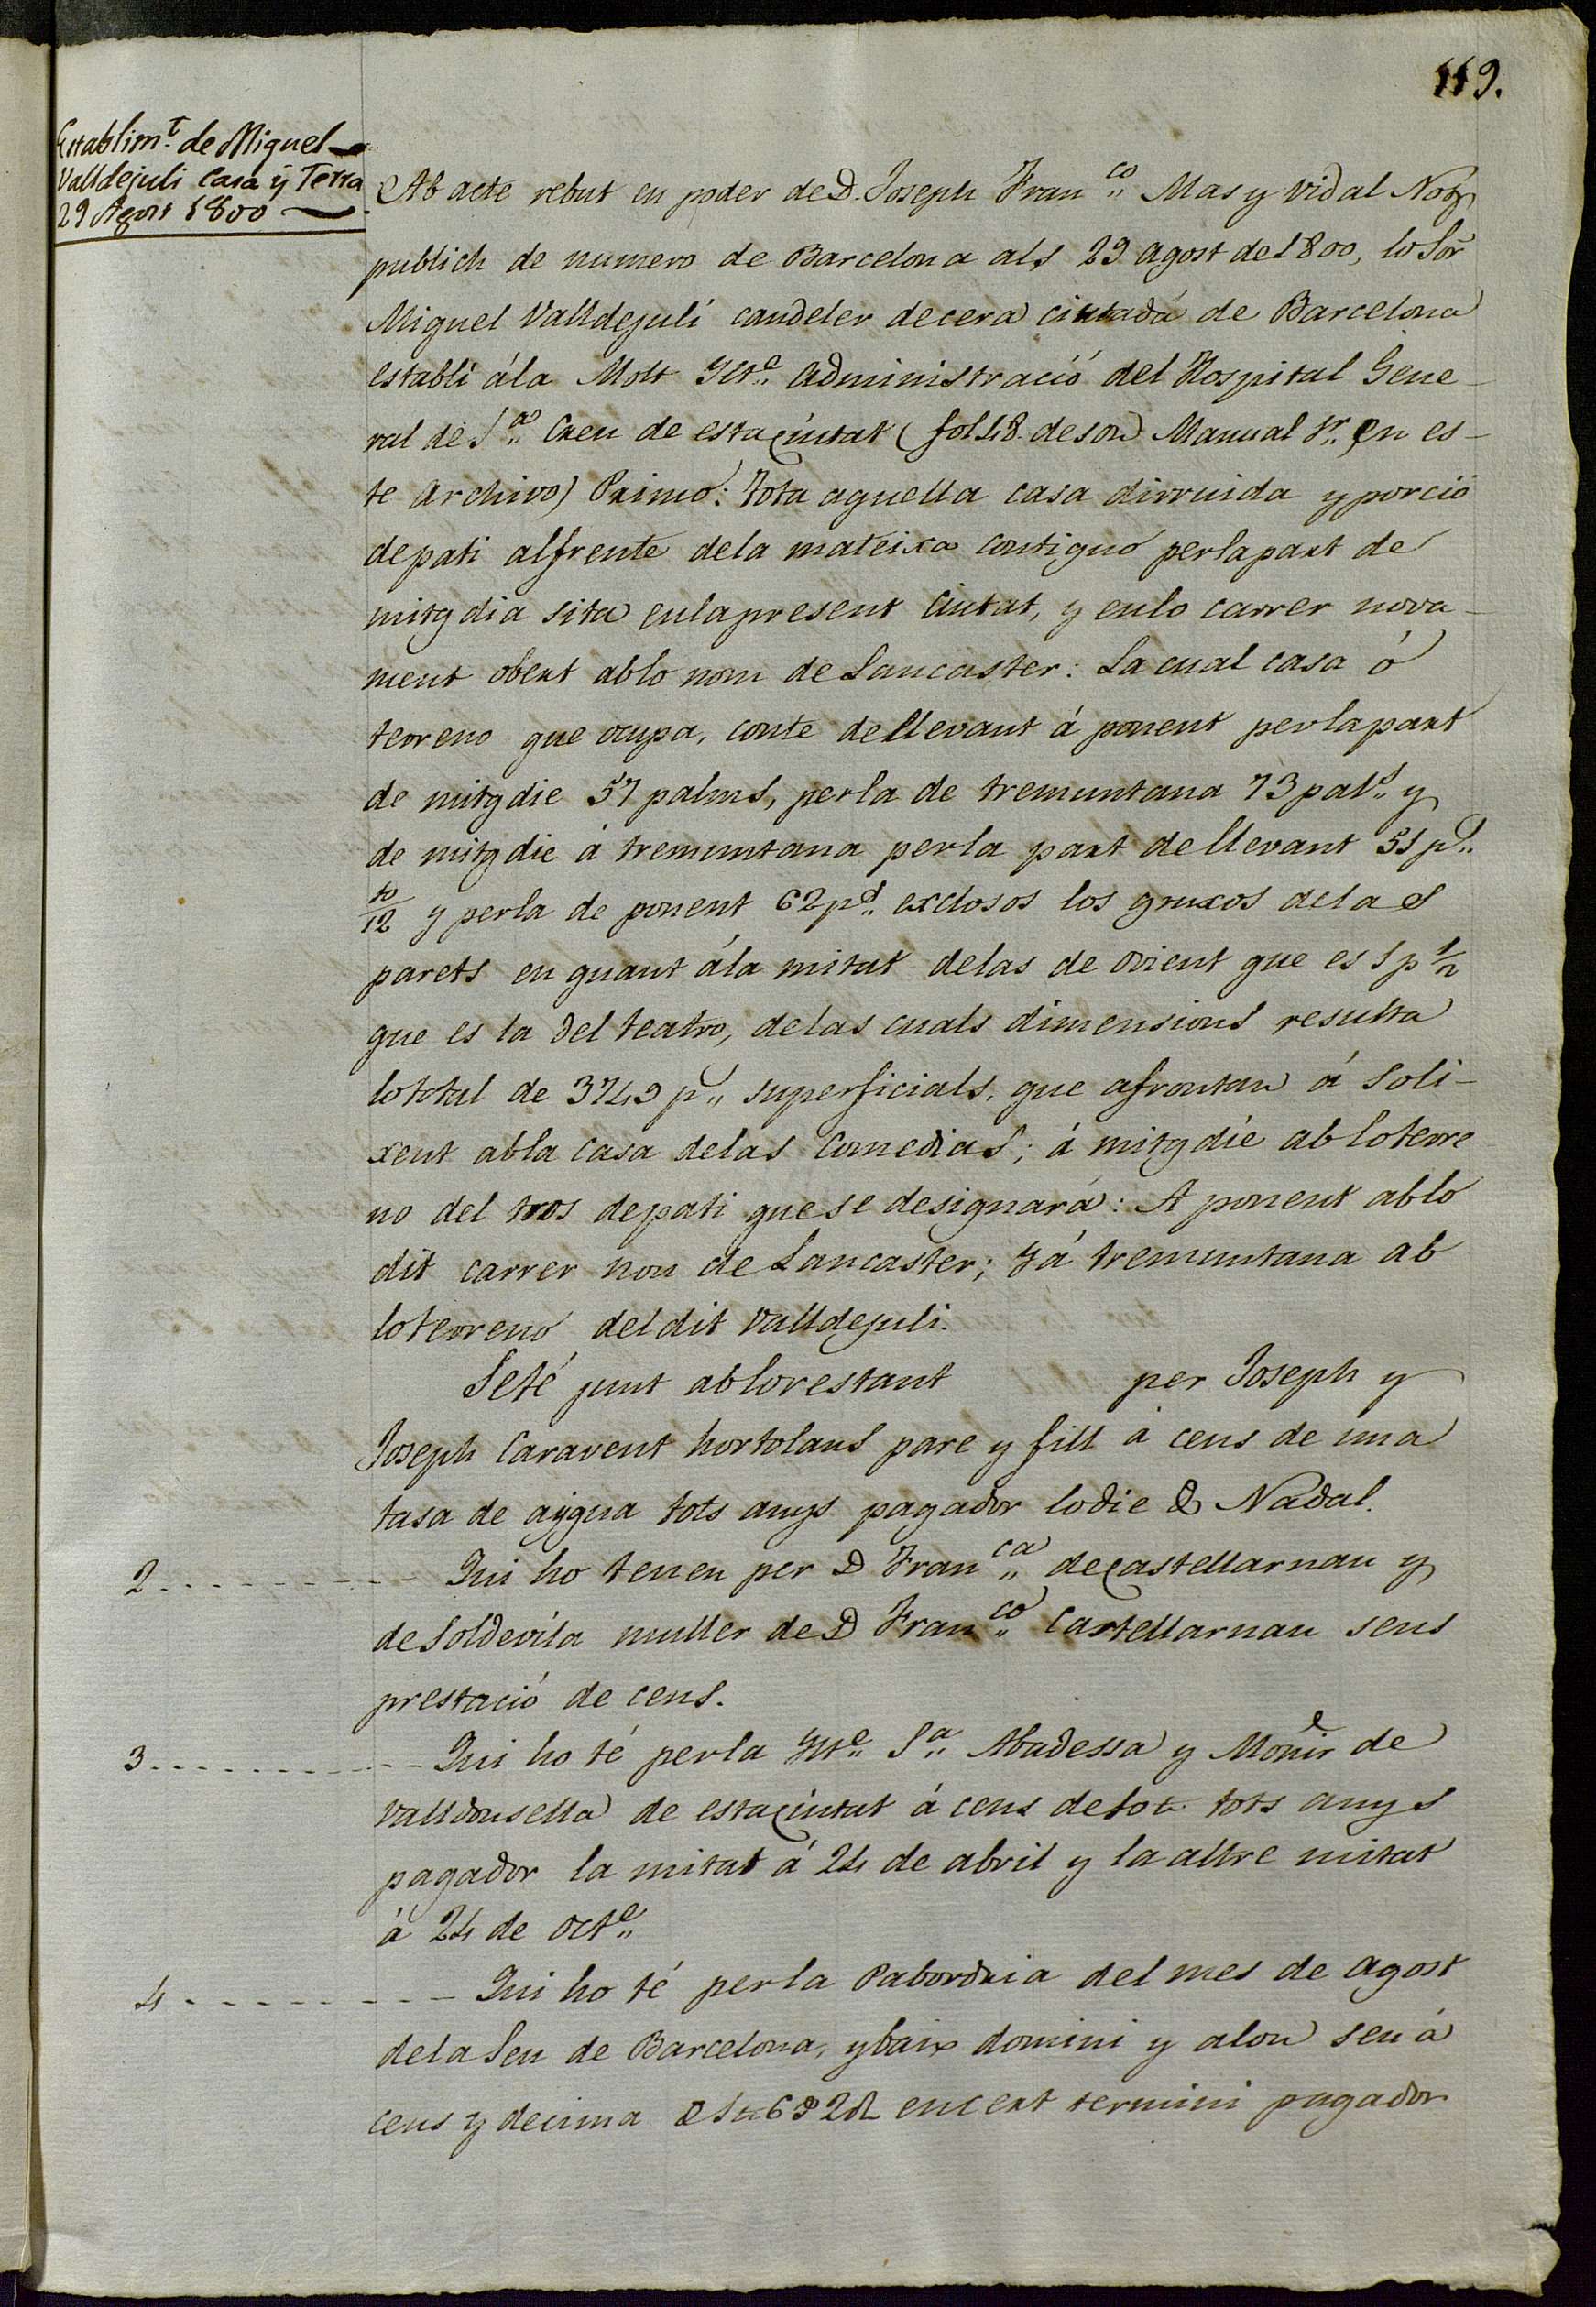 119.
Establim.t de Miguel
Valldejuli Casa y Terra
29 Agost 1800
Ab acte rebut en poder de D. Joseph Fran.co Mas y Vidal Not.
publich de numero de Barcelona als 29 agost de 1800, lo Sor
Miguel Valldejulí candeler de cera ciutadá de Barcelona
establí á la Molt Ilt.e Administració del Hospital Gene-
ral de S.a Creu de esta ciutat (fol 48. de son Manual 1r. en es-
te Archivo) Primo: Tota aquella casa dirruida y porció
de pati al frente de la mateixa contiguo per la part de
mitg dia sita en la present Ciutat, y en lo carrer nova-
ment obert ab lo nom de Lancaster: La cual casa ó
terreno que ocupa, conte de llevant á ponent per la part
de mitg die 57 palms, per la de tremuntana 73 pal.s y
de mitg die á tremuntana per la part de llevant 51 p.s
10/12 y per la de ponent 62 p.s exclosos los gruxos de la s
parets en quant á la mitat de las de orient que es 1 p 1/2
que es la del teatro, de las cuals dimensions resulta
lo total de 3749 p.s superficials, que afrontan á soli-
xent ab la casa de las Comedias; á mitg die ab lo terre
no del tros de pati que se designará: A ponent ab lo
dit carrer nou de Lancaster; Y á tremuntana ab
lo terreno del dit Valldejuli.
Se té junt ab lo restant per Joseph y
Joseph Caravent hortolans pare y fill á cens de una
tasa de aygua tots anys pagador lo die de Nadal.
2 - - - - - - - - - Qui ho tenen per D Fran.ca de Castellarnau y
de Soldevila muller de D Fran.co Castellarnau sens
prestació de cens.
3 - - - - - - - - - Qui ho té per la Ilt.e S.a Abadessa y Monir de
Valldonsella de esta ciutat á cens de tots anys
pagador la mitat á 24 de abril y la altre mitat
á 24 de oct.e
4 - - - - - - - - - Qui ho té per la Pabordria del mes de agost
de la Seu de Barcelona, y baix domini y alou seu á
cens y decima de 1 ₶ 6 s 2 d en cert termini pagador